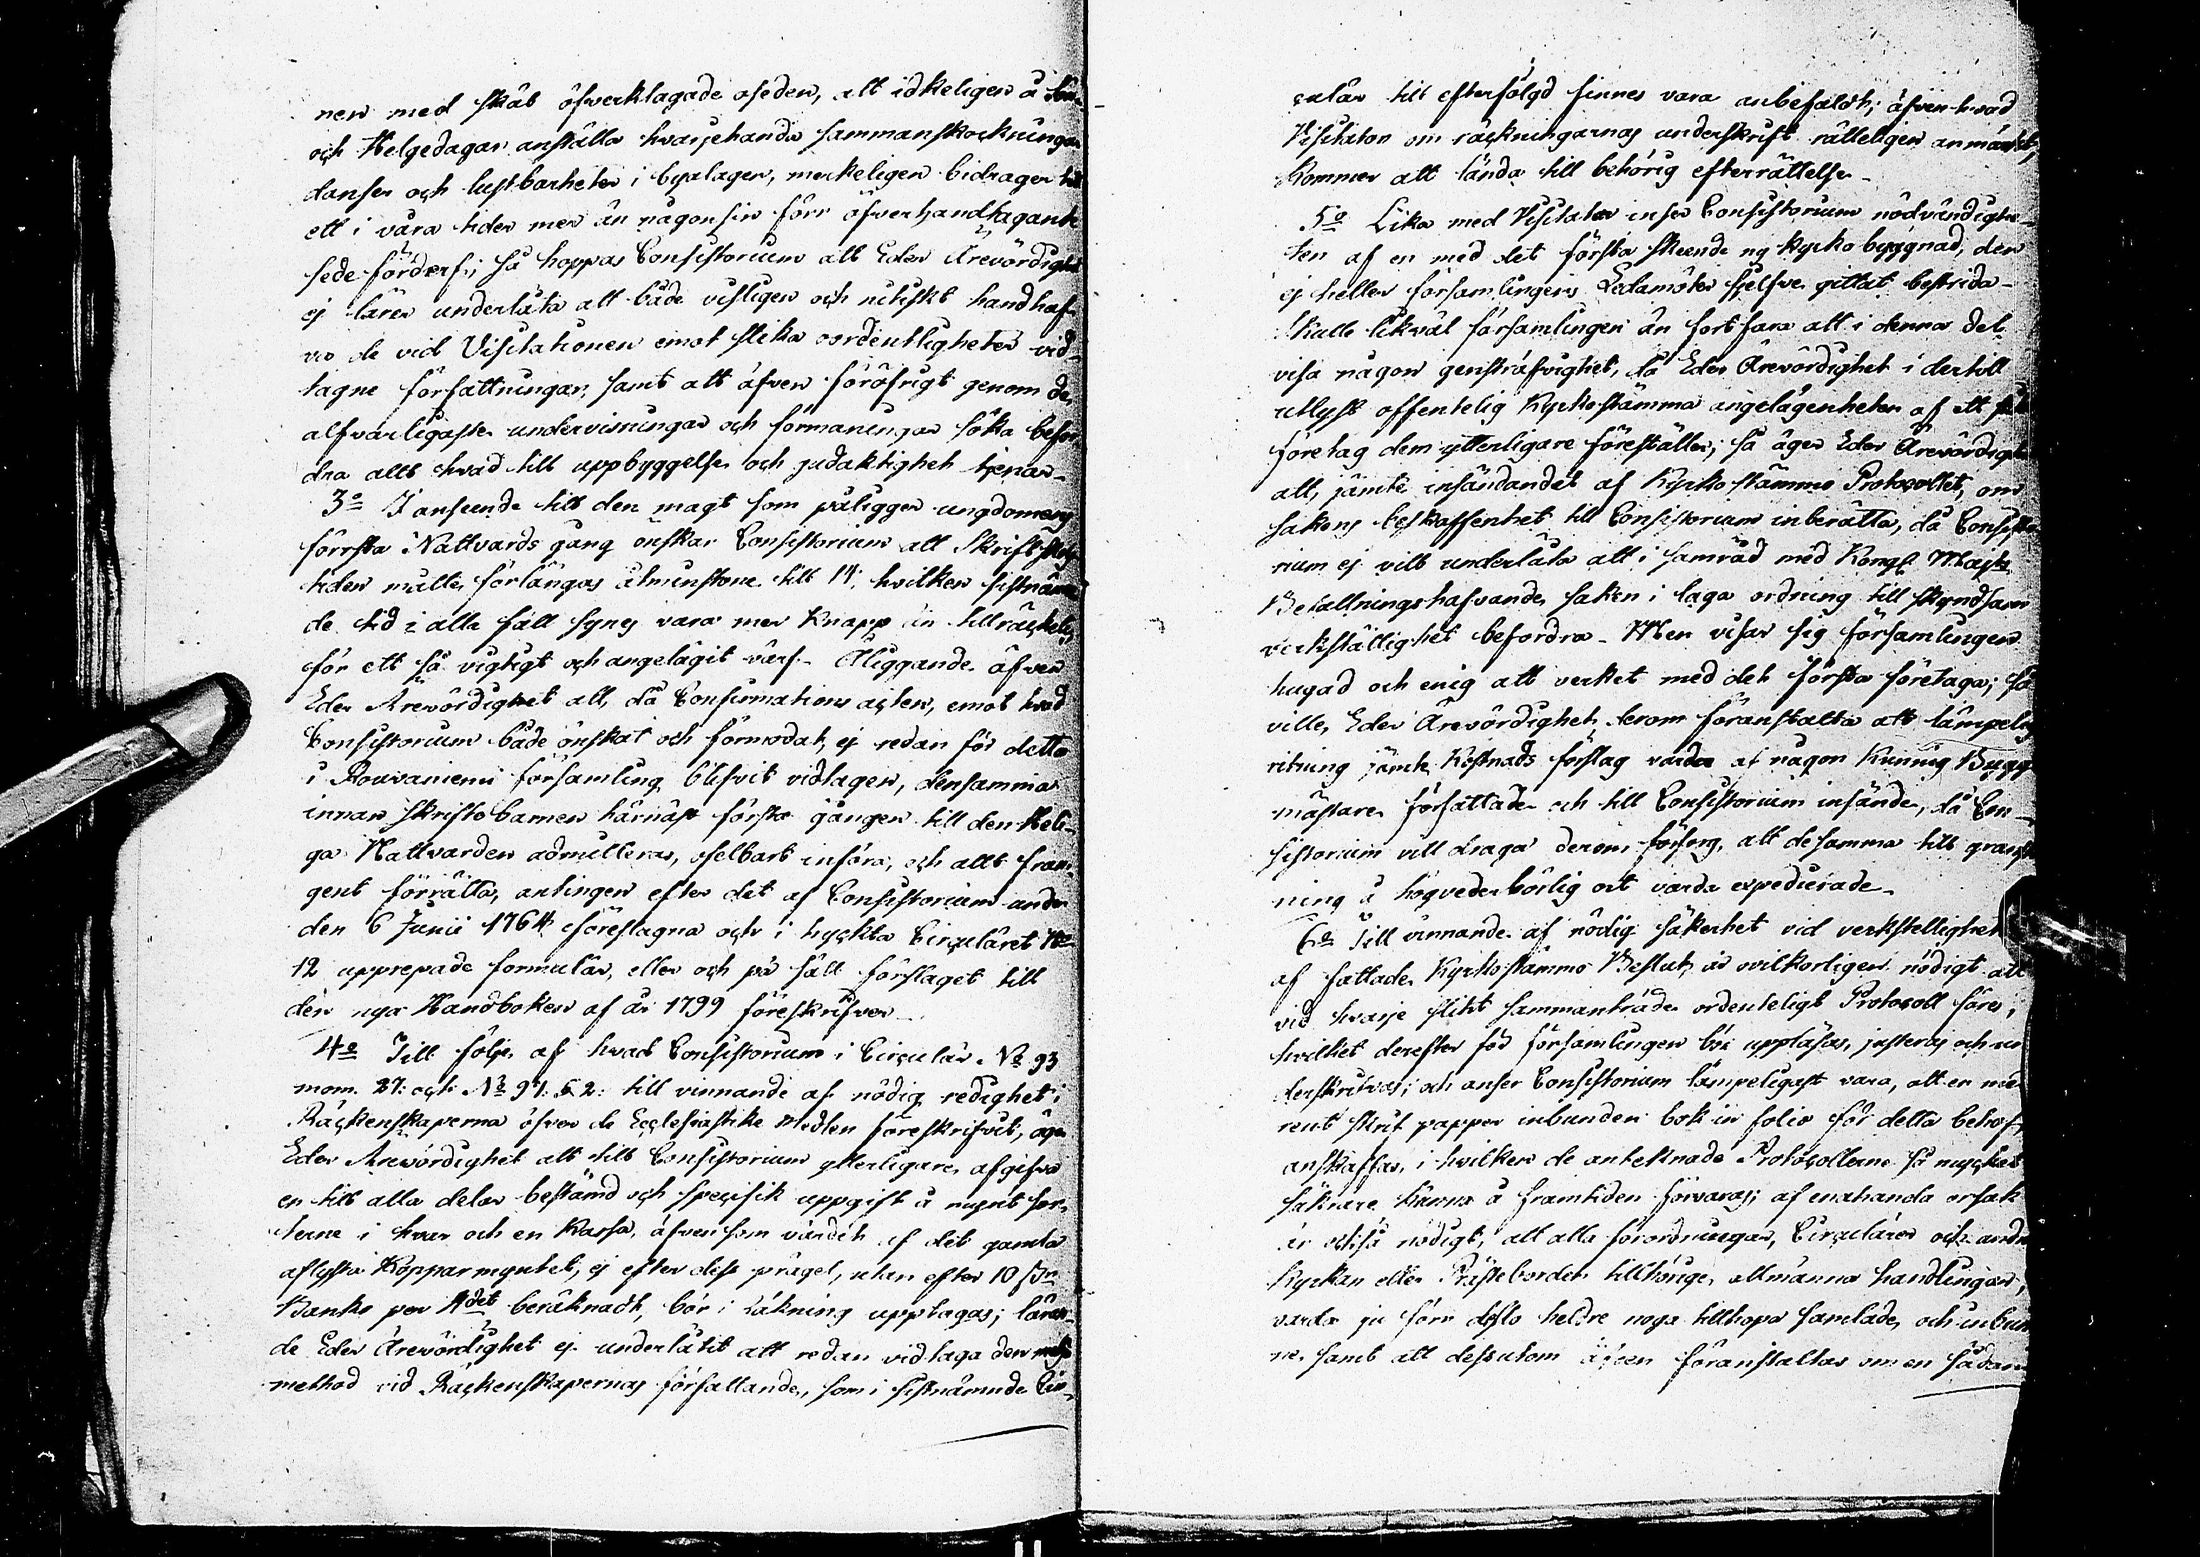 nen med skäl öfverklagade oseden, att idkeligen å Sön-
och Helgedagar anställa hvarjehanda sammanskockningar
danser och lustbarheter i byalagen, merkeligen bidrager till
ett i våra tider mer än någonsin förr öfverhandtagande
sedeförderf; så hoppas Consistorium att Eder Ärevördighet
ej lärer underlåta att både visligen och nitiskt handhaf-
va de vid Visitationen emot slika oordentligheter vid-
tagne författningar, samt att äfven föröfrigt genom de
alfvarligaste undervisningar och förmaningar söka befor
dra allt hvad till uppbyggelse och gudaktighet tjenar.
3o I anseende till den magt som påligger ungdomens
förrsta Nattvards gång önskar Consistorium att Skriftskole
tiden måtte förlängas åtminstone till 14, hvilken sistnämn
de tid i alla fall synes vara mer knapp än tillräckelig
för ett så vigtigt och angelägit värf. Åliggande äfven
Eder Ärevördighet att, då Confirmations acten, emot hvad
Consistorium både önskat och förmodat, ej redan för detta
i Rouvaniemi församling blifvit vidtagen, densamma
innan skriftebarnen härnäst första gången till den Heli-
ga Nattvarden admitteras, ofelbart införa, och allt fram-
gent förrätta, antingen efter det af Consistorium under
den 6 Junii 1764 föreslagna och i tryckta Circuläret No
12 upprepade formulär, eller och på sätt förslaget till
den nya Handboken af år 1799 föreskrifver.
4o Till följe af hvad Consistorium i Circulär No 93
mom. 27: och No 97. § 2: till vinnande af nödig redighet i
Räckenskaperna öfver de Ecclesiastike Medlen föreskrifvit, äger
Eder Ärevördighet att till Consistorium ytterligare afgifva
en till alla delar bestämd och specifik uppgift å mynt sor-
terne i hvar och en Kassa, äfvensom värdet af det gamla
aflysta Kopparmyntet, ej efter dess prägel, utan efter 10 Sk
Banko per ℔det beräknadt, bör i räkning upptagas; läran-
de Eder Ärevördighet ej underlåtit att redan vidtaga den nya
method vid Räckenskapernas författande, som i sistnämnde Cir-
culär till efterföljd finnes vara anbefaldt; äfven hvad
Visitator om räckningarnas underskrift rätteligen anmärkt,
kommer att lända till behörig efterrättelse.
5o Lika med Visitator inser Consistorium nödvändighe-
ten af en med det första skeende ny kyrko byggnad, den
ej heller församlingens Ledamöter sjelfve gittat bestrida.
Skulle likväl församlingen än fortfara att i denna del
visa någon genstráfvighet, då Eder Ärevördighet i dertill
utlyst offentelig Kyrkostämma angelägenheten af ett
företag dem ytterligare föreställer; så äger Eder Ärevördighet
att, jämte insändandet af Kyrkostämmo Protocollet, om
sakens beskaffenhet till Consistorium inberätta, då Consisto
rium ej vill underlåta att i samråd med Kongl Majts
Befallningshafvande saken i laga ordning till skyndsam
verkställighet befordra. Men visar sig församlingen
hugad och enig att verket med det första företaga; så
ville Eder Ärevördighet derom föranstalta att lämpelig
ritning jämte Kostnads förslag varda af någon Kunnig Bygg
mästare författade och till Consistorium insände, då Con-
sistorium vill draga derom försorg, att desamma till gransk
ning å högvederbörlig ort varda expedierade.
6o Till vinnande af nödig säkerhet vid verkstellighet
af fattade Kyrkostämmo Beslut, är ovilkorligen nödigt att
vid hvarje slikt sammanträde ordenteligt Protocoll föres;
hvilket derefter för församlingen bör uppläsas, justeras och un
derskrifvas; och anser Consistorium lämpeligast vara, att en med
rent skrif papper inbunden bok in folio för detta behof
anskaffas, i hvilken de anteknade Protocollerne så mycket
säkrare kunna å framtiden förvaras; af enahanda orsak
är också nödigt, att alla förordningar, Circulärer och andra
Kyrkan eller Prästebordet tillhörige allmänna handlingar,
varda ju förr dessto heldre noga tillhopa samlade, och inbun
ne, samt att dessutom äfven föranstaltas om en sådan